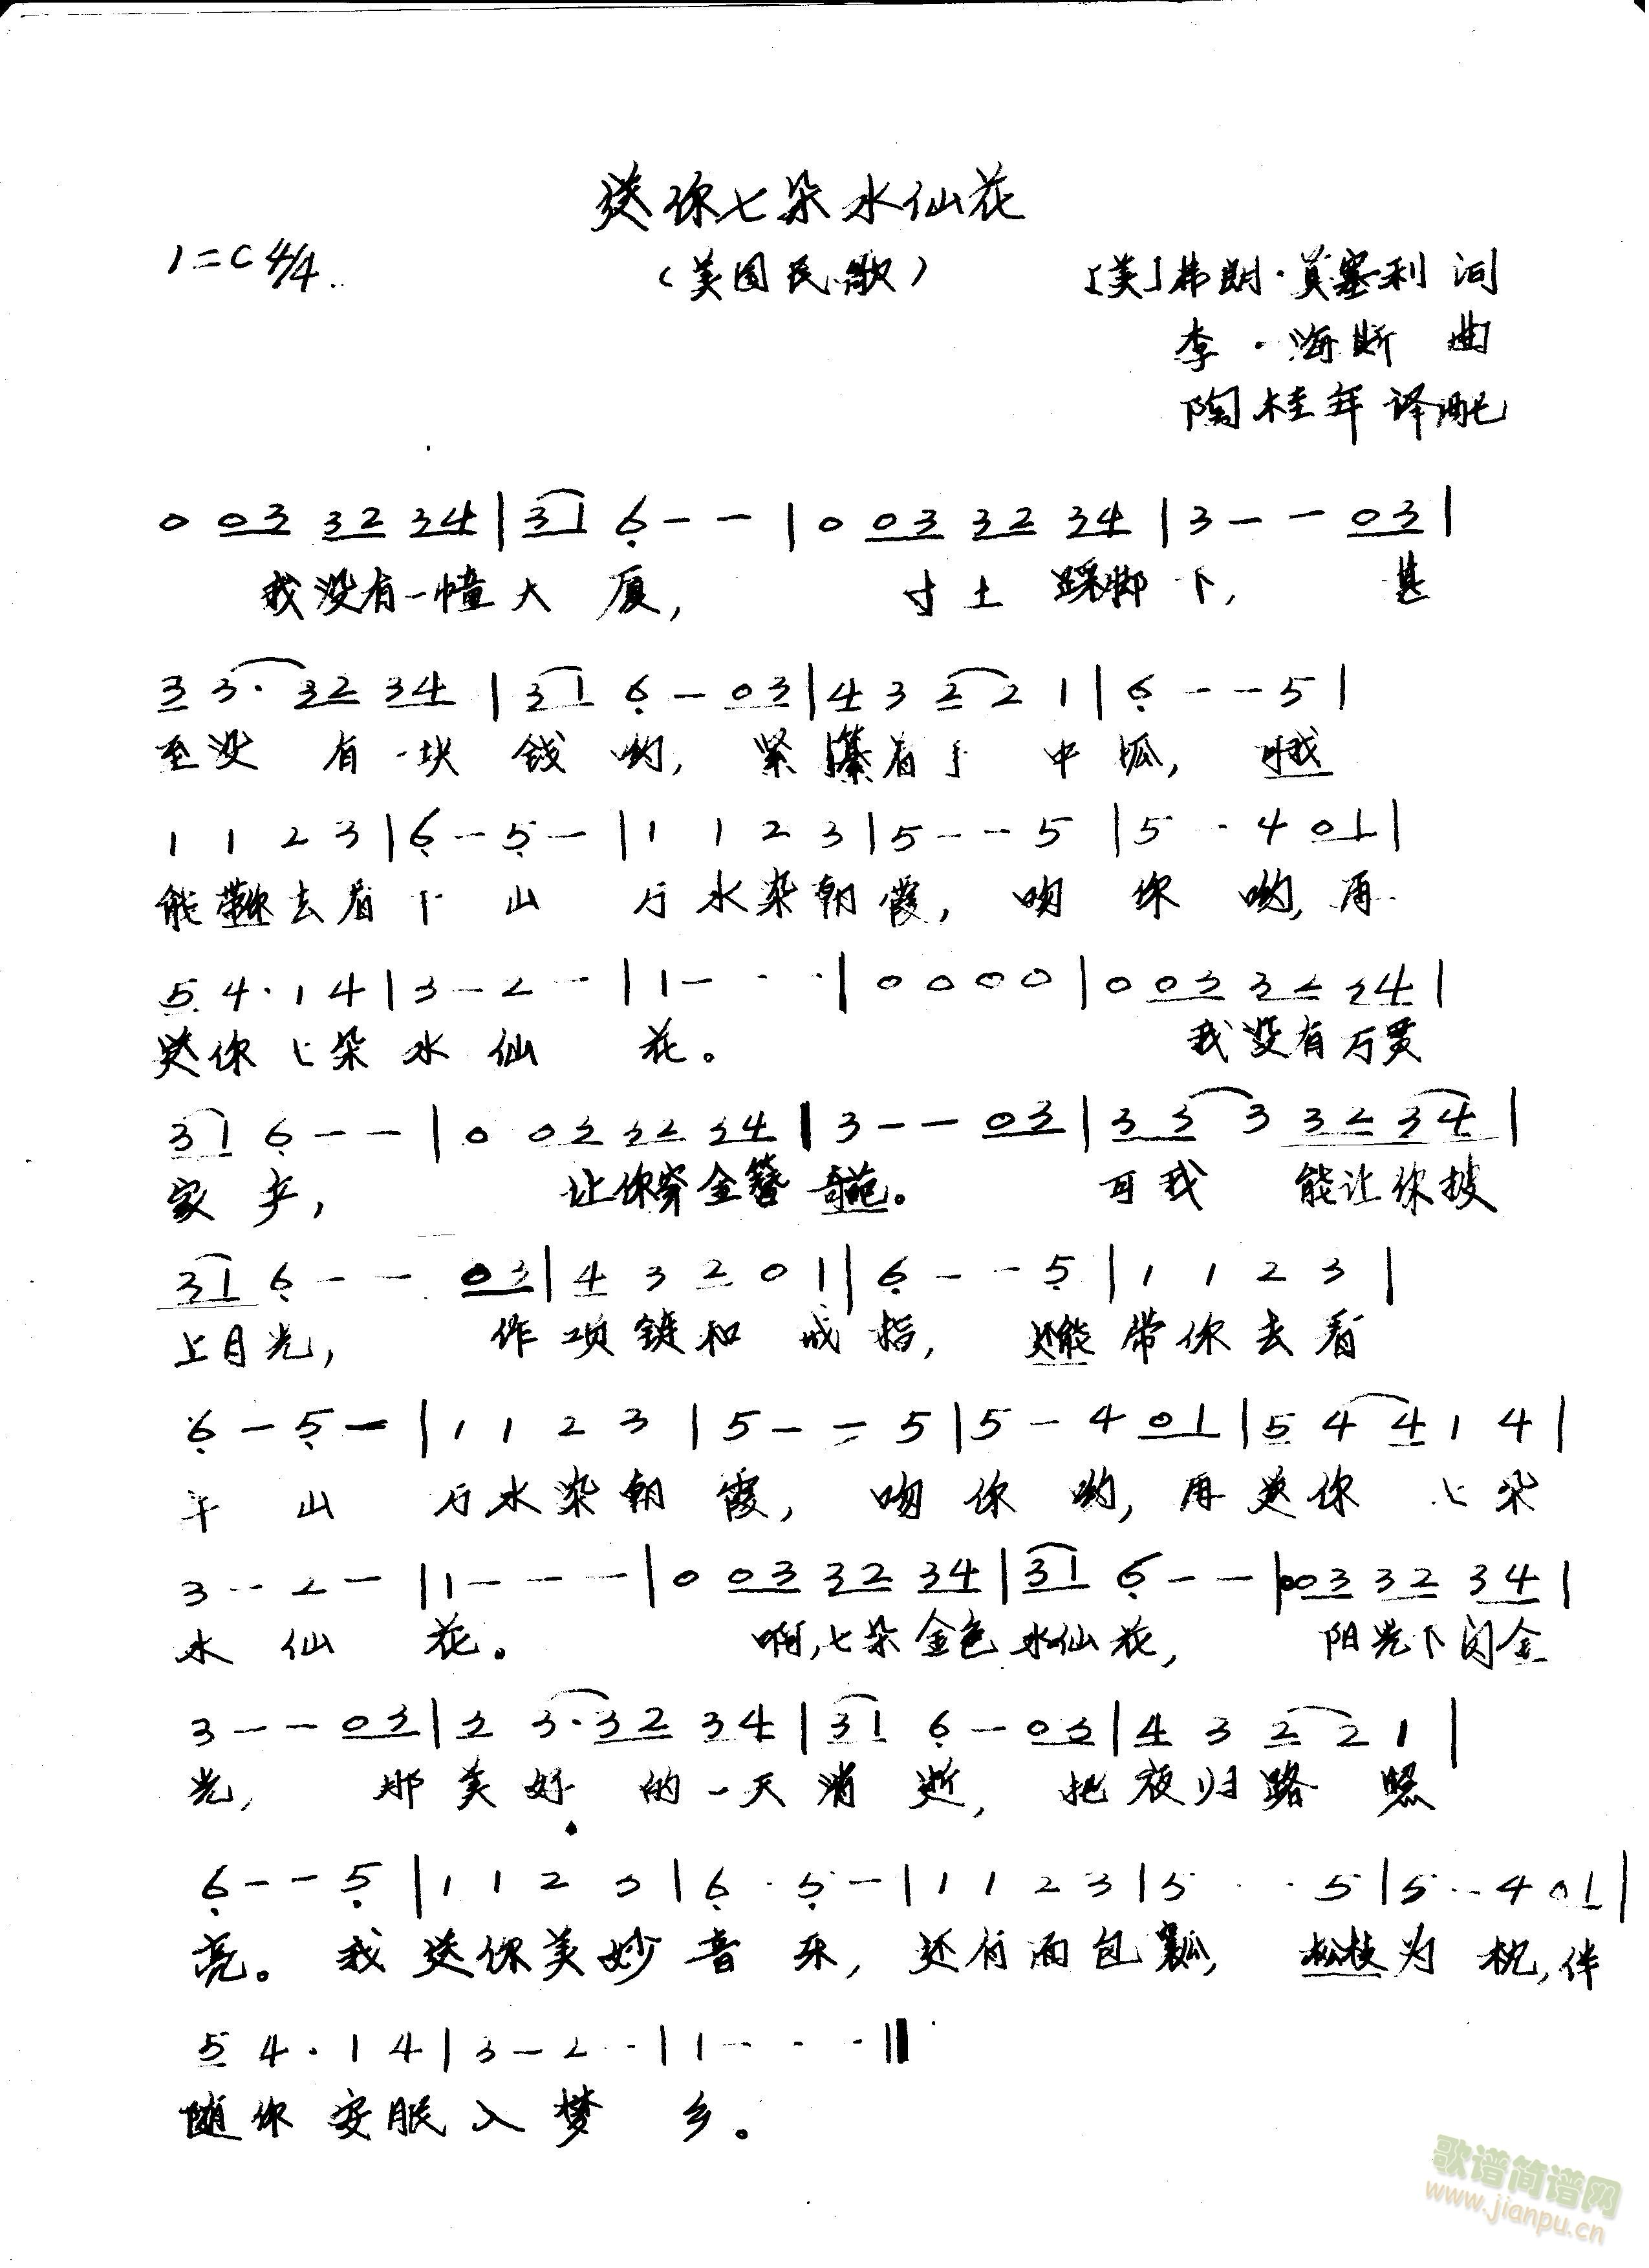 送你七朵水仙花
1=C 4/4
（美国民歌）
[美]弗朗·莫塞利 词
李·海斯 曲
陶桂年 译配
0 03 32 34 | 31 6 - - | 0 03 32 34 | 3 - - 03 |
我没有一幢大厦, 寸土踩脚下, 甚
3 3· 32 34 | 31 6 - 03 | 4 3 2 2 1 | 6 - - 5 |
至没有一块钱哟, 紧攥着手中抓, 我
1 1 2 3 | 6 - 5 - | 1 1 2 3 | 5 - - 5 | 5 - 4 01 |
能带你去看千山万水染朝霞, 吻你哟, 再
5 4· 1 4 | 3 - 2 - | 1 - - - | 0 0 0 0 | 0 03 32 34 |
送你七朵水仙花。 我没有万贯
31 6 - - | 0 03 32 34 | 3 - - 03 | 33 3 32 34 |
家产, 让你穿金簪 可我能让你披
31 6 - - 03 | 4 3 2 0 1 | 6 - - 5 | 1 1 2 3 |
上月光, 作项链和戒指, 还能带你去看
6 - 5 - | 1 1 2 3 | 5 - - 5 | 5 - 4 01 | 5 4 4 1 4 |
千山万水染朝霞, 吻你哟, 再送你七朵
3 - 2 - | 1 - - - | 0 03 32 34 | 31 6 - - | 003 32 34 |
水仙花。 啊,七朵金色水仙花, 阳光下闪金
3 - - 03 | 3 3· 32 34 | 31 6 - 03 | 4 3 2 2 1 |
光, 那美好的一天消逝, 把夜归路照
6 - - 5 | 1 1 2 3 | 6 - 5 - | 1 1 2 3 | 5 - - 5 | 5 - 4 01 |
亮。我送你美妙音乐, 还有面包瓤, 松枝为枕, 伴
5 4· 1 4 | 3 - 2 - | 1 - - - ||
随你安眠入梦乡。
歌谱简谱网
www.jianpu.cn